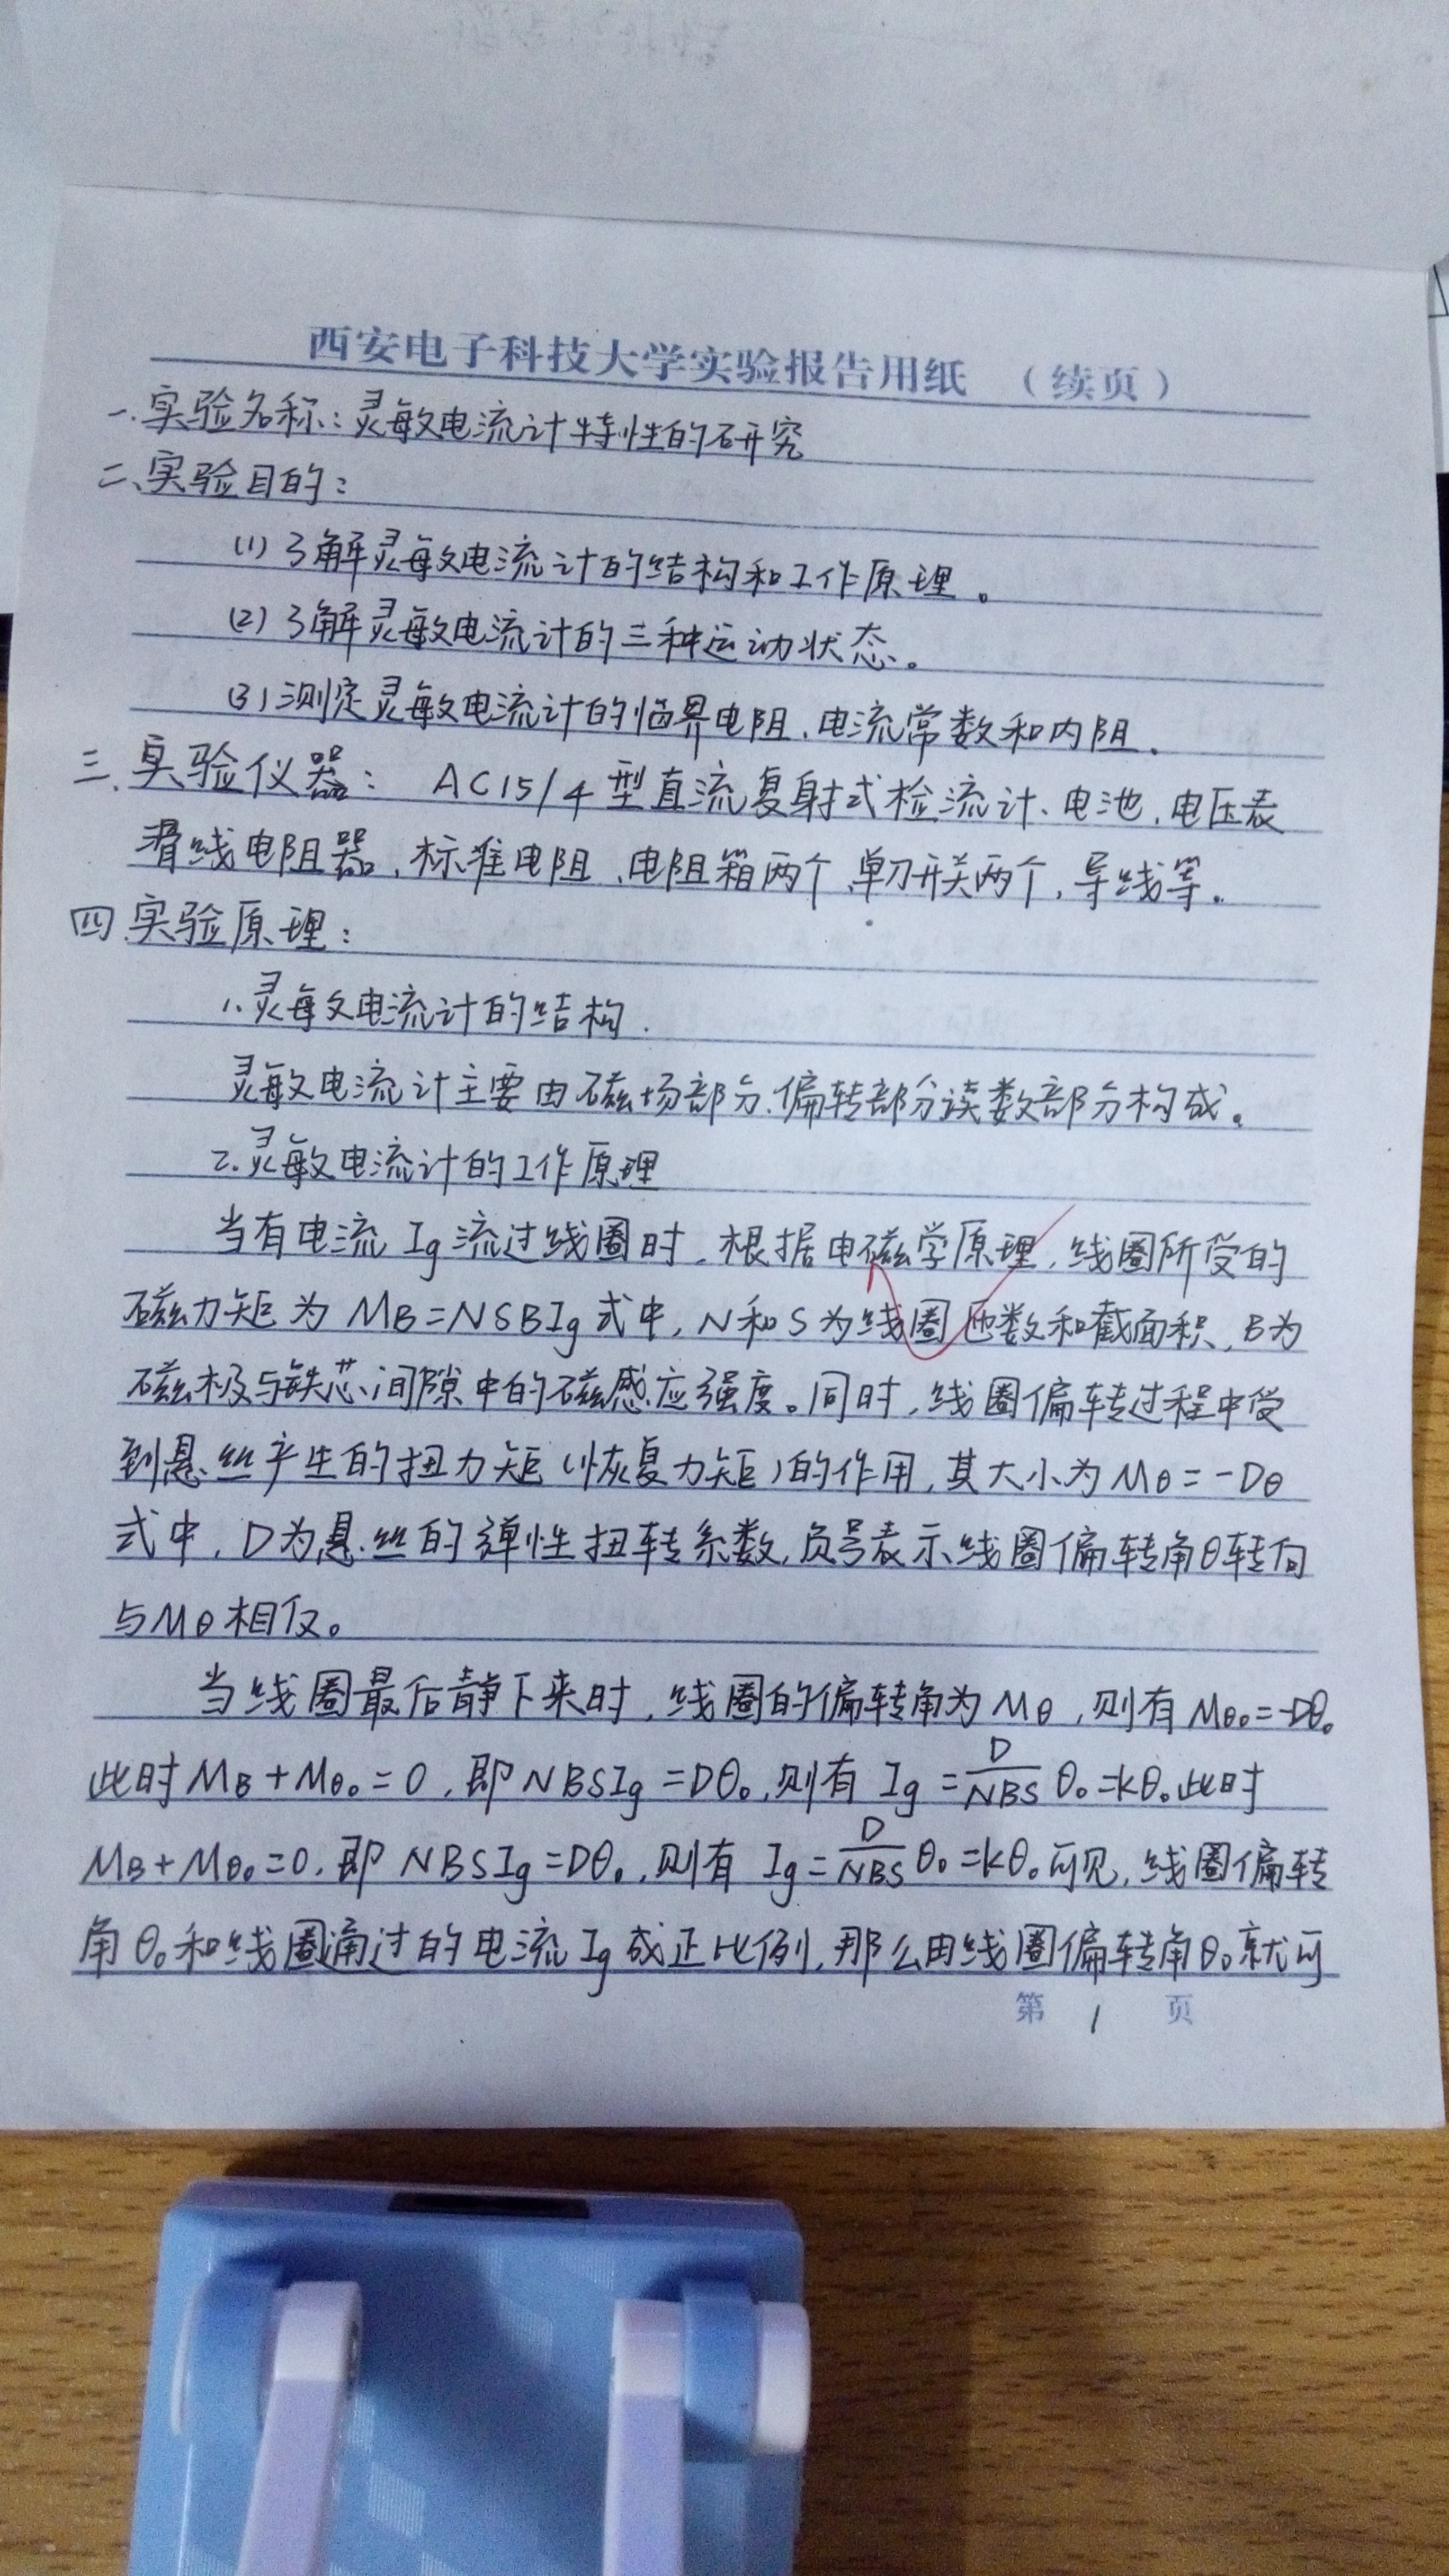 西安电子科技大学实验报告用纸 （续页）
一.实验名称:灵敏电流计特性的研究
二、实验目的:
(1)了解灵敏电流计的结构和工作原理。
(2)了解灵敏电流计的三种运动状态。
(3)测定灵敏电流计的临界电阻、电流常数和内阻.
三.实验仪器: AC15/4型直流复射式检流计、电池,电压表
滑线电阻器,标准电阻、电阻箱两个、单刀开关两个,导线等.
四.实验原理:
1.灵敏电流计的结构.
灵敏电流计主要由磁场部分.偏转部分读数部分构成。
2.灵敏电流计的工作原理
当有电流Ig流过线圈时,根据电磁学原理,线圈所受的
磁力矩为MB=NSBIg式中,N和S为线圈匝数和截面积,B为
磁极与铁芯间隙中的磁感应强度。同时,线圈偏转过程中受
到悬丝产生的扭力矩(恢复力矩)的作用,其大小为Mθ=-Dθ
式中,D为悬丝的弹性扭转系数,负号表示线圈偏转角θ转向
与Mθ相反。
当线圈最后静下来时,线圈的偏转角为Mθ,则有Mθ₀=-Dθ₀
此时MB+Mθ₀=0,即NBSIg=Dθ₀,则有 Ig=D/NBS θ₀=kθ₀此时
MB+Mθ₀=0,即NBSIg=Dθ₀,则有 Ig=D/NBS θ₀=kθ₀可见,线圈偏转
角θ₀和线圈通过的电流Ig成正比例,那么由线圈偏转角θ₀就可
第 1 页